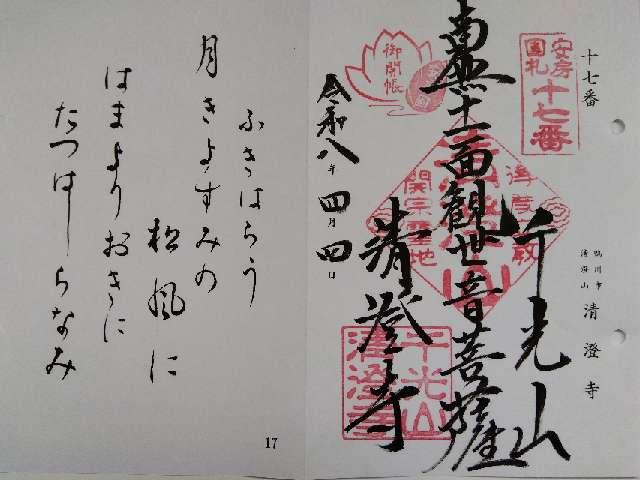 十七番
鴨川市
清澄山
清澄寺
安房
国札
十七番
千光山
南無十一面観世音菩薩
清澄寺
御開帳
令和八年四月四日
開宗聖地
千光山
清澄寺
ふきはらう
月きよすみの
松風に
はまよりおきに
たつはしらなみ
17